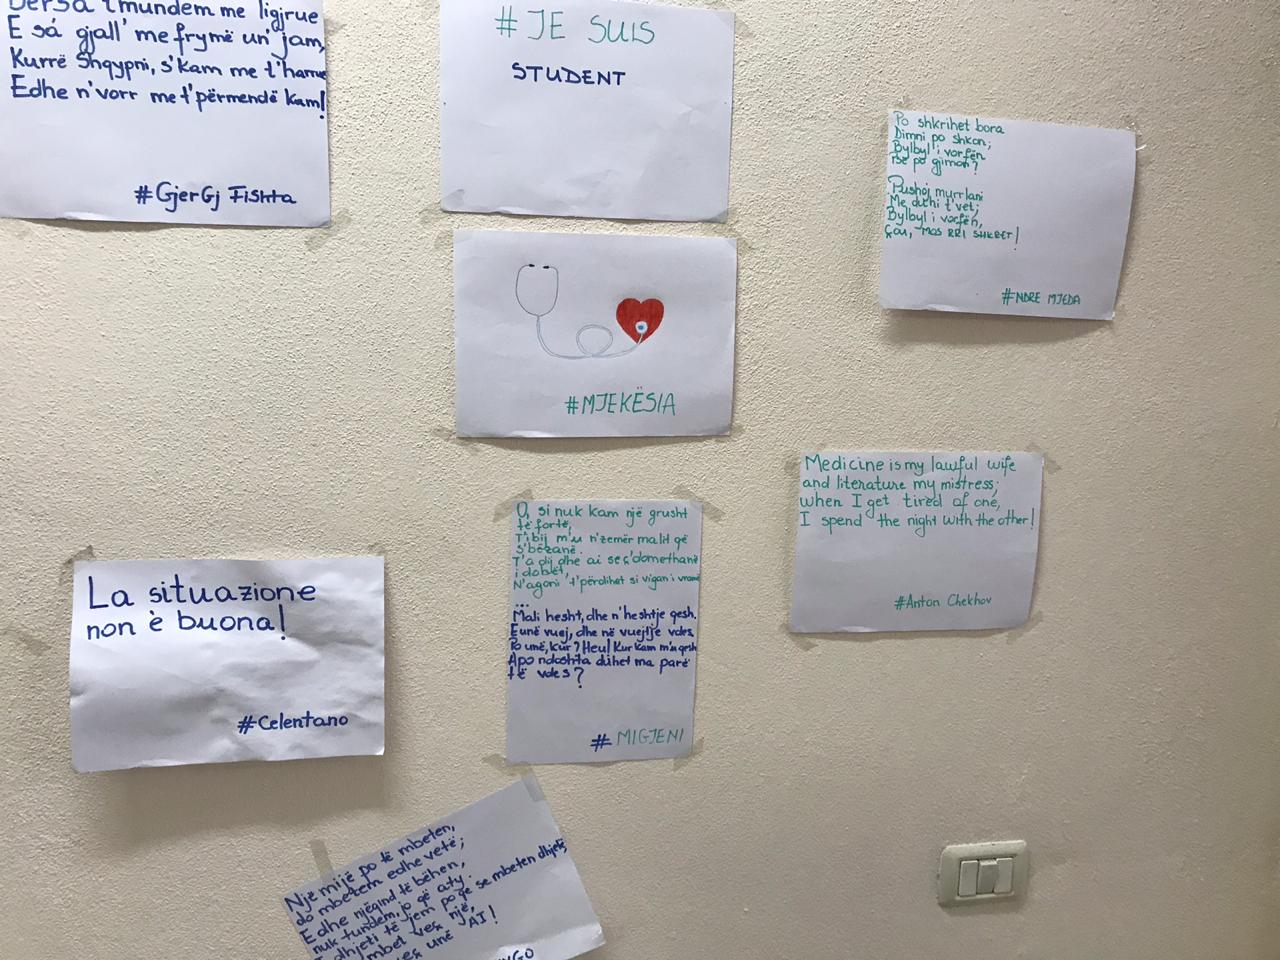 Dersa t'mundem me ligjrue
E sá gjall' me frymë un' jam,
Kurrë Shqypni, s'kam me t'harrue
Edhe n'vorr me t'përmendë kam!
#GjerGj Fishta
#JE SUIS
STUDENT
Po shkrihet bora
Dimni po shkon;
Bylbyl i vorfën
Pse po gjimon?
Pushoj murrlani
Me duhi t'vet;
Bylbyl i vorfën,
Çou, mos RRI SHKRET!
#NDRE MJEDA
#MJEKËSIA
Medicine is my lawful wife
and literature my mistress;
when I get tired of one,
I spend the night with the other!
#Anton Chekhov
O, si nuk kam një grusht
të fortë,
T'i bij m'u n'zemër malit që
s'bëzanë.
T'a dij dhe ai se ç'domethanë
i dobët,
N'agoni t'përdihet si vigan i vramë
...
Mali hesht, dhe n'heshtje qesh.
E unë vuej, dhe në vuejtje vdes,
Po unë, kur? Heu! Kur kam m'u qesh
Apo ndoshta duhet ma parë
të vdes?
# MIGJENI
La situazione
non è buona!
#Celentano
Një mijë po të mbeten,
do mbetem edhe vetë;
Edhe njëqind të bëhen,
nuk tundem, jo që aty.
I dhjeti të jem po qe se mbeten dhjetë,
mbet veç një,
veç unë AI!